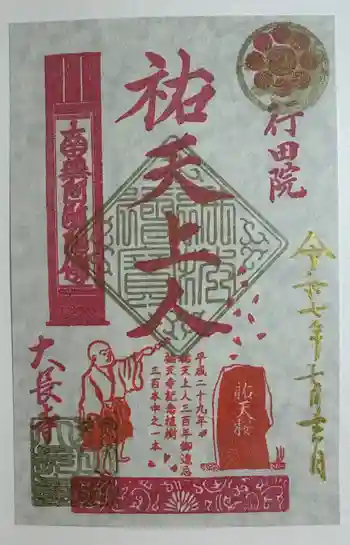 行田院
祐天上人
南無阿弥陀佛
令和七年二月
大長寺
平成二十九年
祐天上人三百年御遠忌
祐天寺記念植樹
三百本中之一本
祐天桜